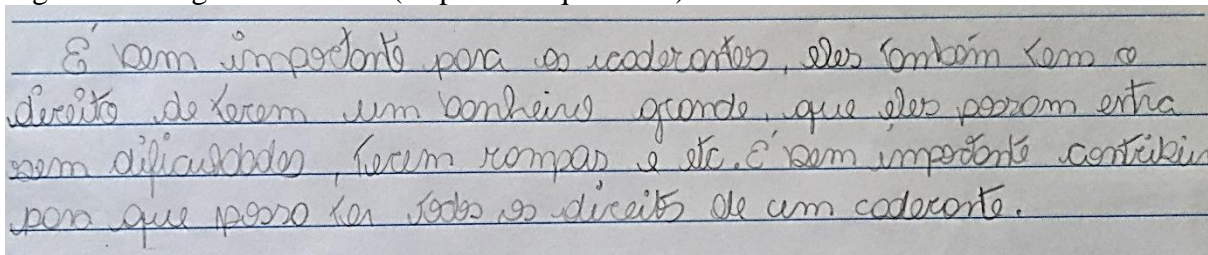 É bem importante para os caderantes, eles também tem o
direito de terem um banheiro grande, que eles possam entra
sem dificuldades, terem rompas e etc. É bem importante contribuir
para que possa ter todos os direitos de um caderante.